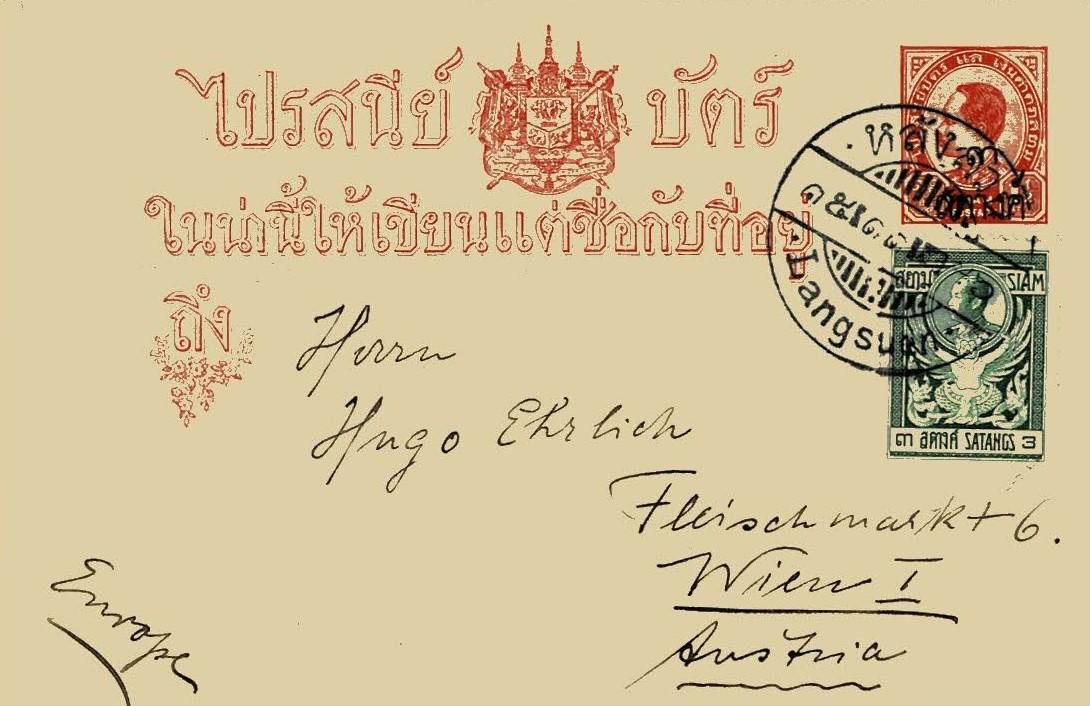 ไปรสนียบัตร์
ในน่านี้ให้เขียนแต่ชื่อกับที่อยู่
ถึง
หลังสวน
Langsuan
สยาม SIAM
๓ สตางค์ SATANGS 3
Herrn
Hugo Ehrlich
Fleischmarkt 6.
Wien I
Austria
Europe